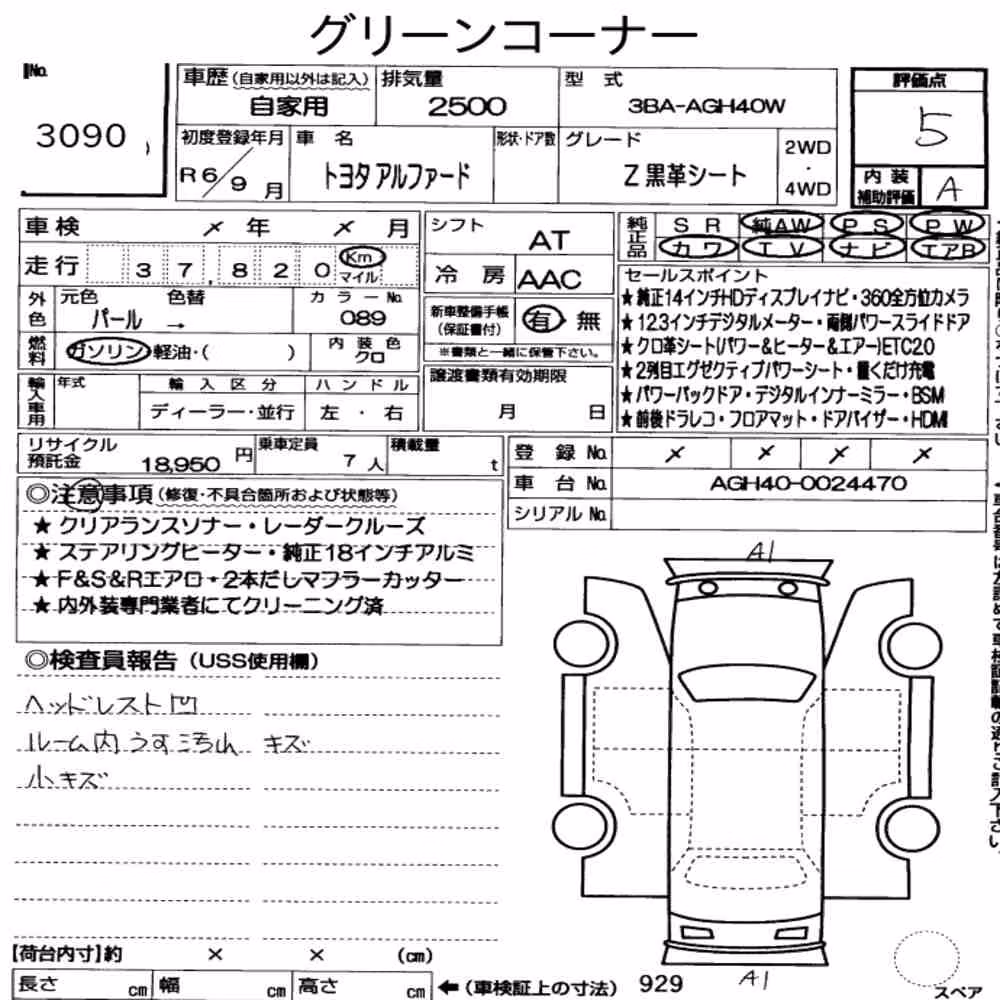 グリーンコーナー
No.
3090
車歴(自家用以外は記入)
自家用
排気量
2500
型 式
3BA-AGH40W
評価点
5
初度登録年月
R6/9月
車 名
トヨタ アルファード
形状・ドア数
グレード
Z 黒革シート
2WD
・
4WD
内 装
補助評価
A
車検 × 年 × 月
走行 37,820 Km
マイル
外色
元色 色替
パール →
カラーNo.
089
燃料
ガソリン・軽油・( )
内 装 色
クロ
輸入車用
年式
輸 入 区 分
ディーラー・並行
ハ ン ド ル
左 ・ 右
シフト
AT
冷 房
AAC
新車整備手帳
(保証書付)
有 無
※書類と一緒に保管下さい。
譲渡書類有効期限
月 日
純正品
SR 純AW PS PW
カワ TV ナビ エアB
セールスポイント
★純正14インチHDディスプレイナビ・360全方位カメラ
★12.3インチデジタルメーター・両側パワースライドドア
★クロ革シート(パワー&ヒーター&エアー)ETC2.0
★2列目エグゼクティブパワーシート・置くだけ充電
★パワーバックドア・デジタルインナーミラー・BSM
★前後ドラレコ・フロアマット・ドアバイザー・HDMI
リサイクル
預託金
18,950 円
乗車定員
7 人
積載量
t
登 録 No. × × × ×
車 台 No. AGH40-0024470
シリアル No.
◎注意事項(修復・不具合箇所および状態等)
★ クリアランスソナー・レーダークルーズ
★ ステアリングヒーター・純正18インチアルミ
★ F&S&Rエアロ・2本だしマフラーカッター
★ 内外装専門業者にてクリーニング済
◎検査員報告(USS使用欄)
ヘッドレスト凹
ルーム内うす汚れ キズ
小キズ
A1
A1
スペア
【荷台内寸】約 × × (cm)
長さ cm 幅 cm 高さ cm
←(車検証上の寸法) 929